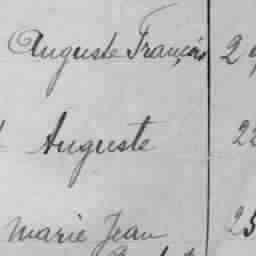 Auguste François 29
Auguste 22
Marie Jean 25